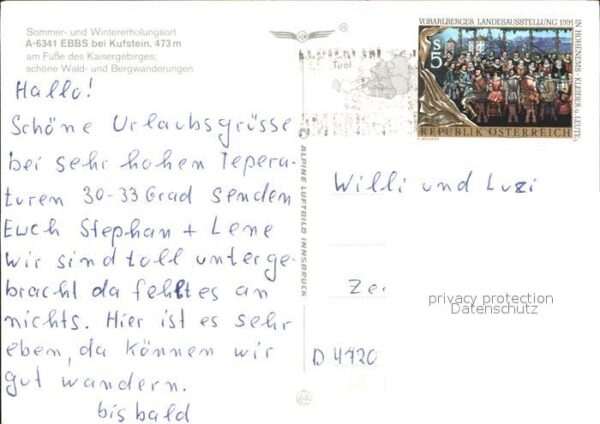 Sommer- und Wintererholungsort
A-6341 EBBS bei Kufstein, 473 m
am Fuße des Kaisergebirges;
schöne Wald- und Bergwanderungen
Hallo!
Schöne Urlaubsgrüsse
bei sehr hohen Tepera-
turen 30-33 Grad senden
Euch Stephan + Lene
wir sind toll unterge-
bracht da fehlt es an
nichts. Hier ist es sehr
eben, da können wir
gut wandern.
bis bald
ALPINE LUFTBILD INNSBRUCK
Tirol
VORARLBERGER LANDESAUSSTELLUNG 1991
IN HOHENEMS - KLEIDER U. LEUTE
S 5
REPUBLIK ÖSTERREICH
Willi und Luzi
D 4720
privacy protection
Datenschutz